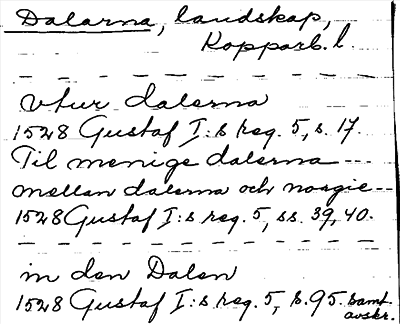 Dalarna, landskap,
Kopparb. l.
vtur dalerna
1528 Gustaf I:s reg. 5, s. 17.
Til menige dalerna ---
mellan dalerna och norgie --
1528 Gustaf I:s reg. 5, ss. 39, 40.
in den Dalen
1528 Gustaf I:s reg. 5, s. 95. samt.
avskr.